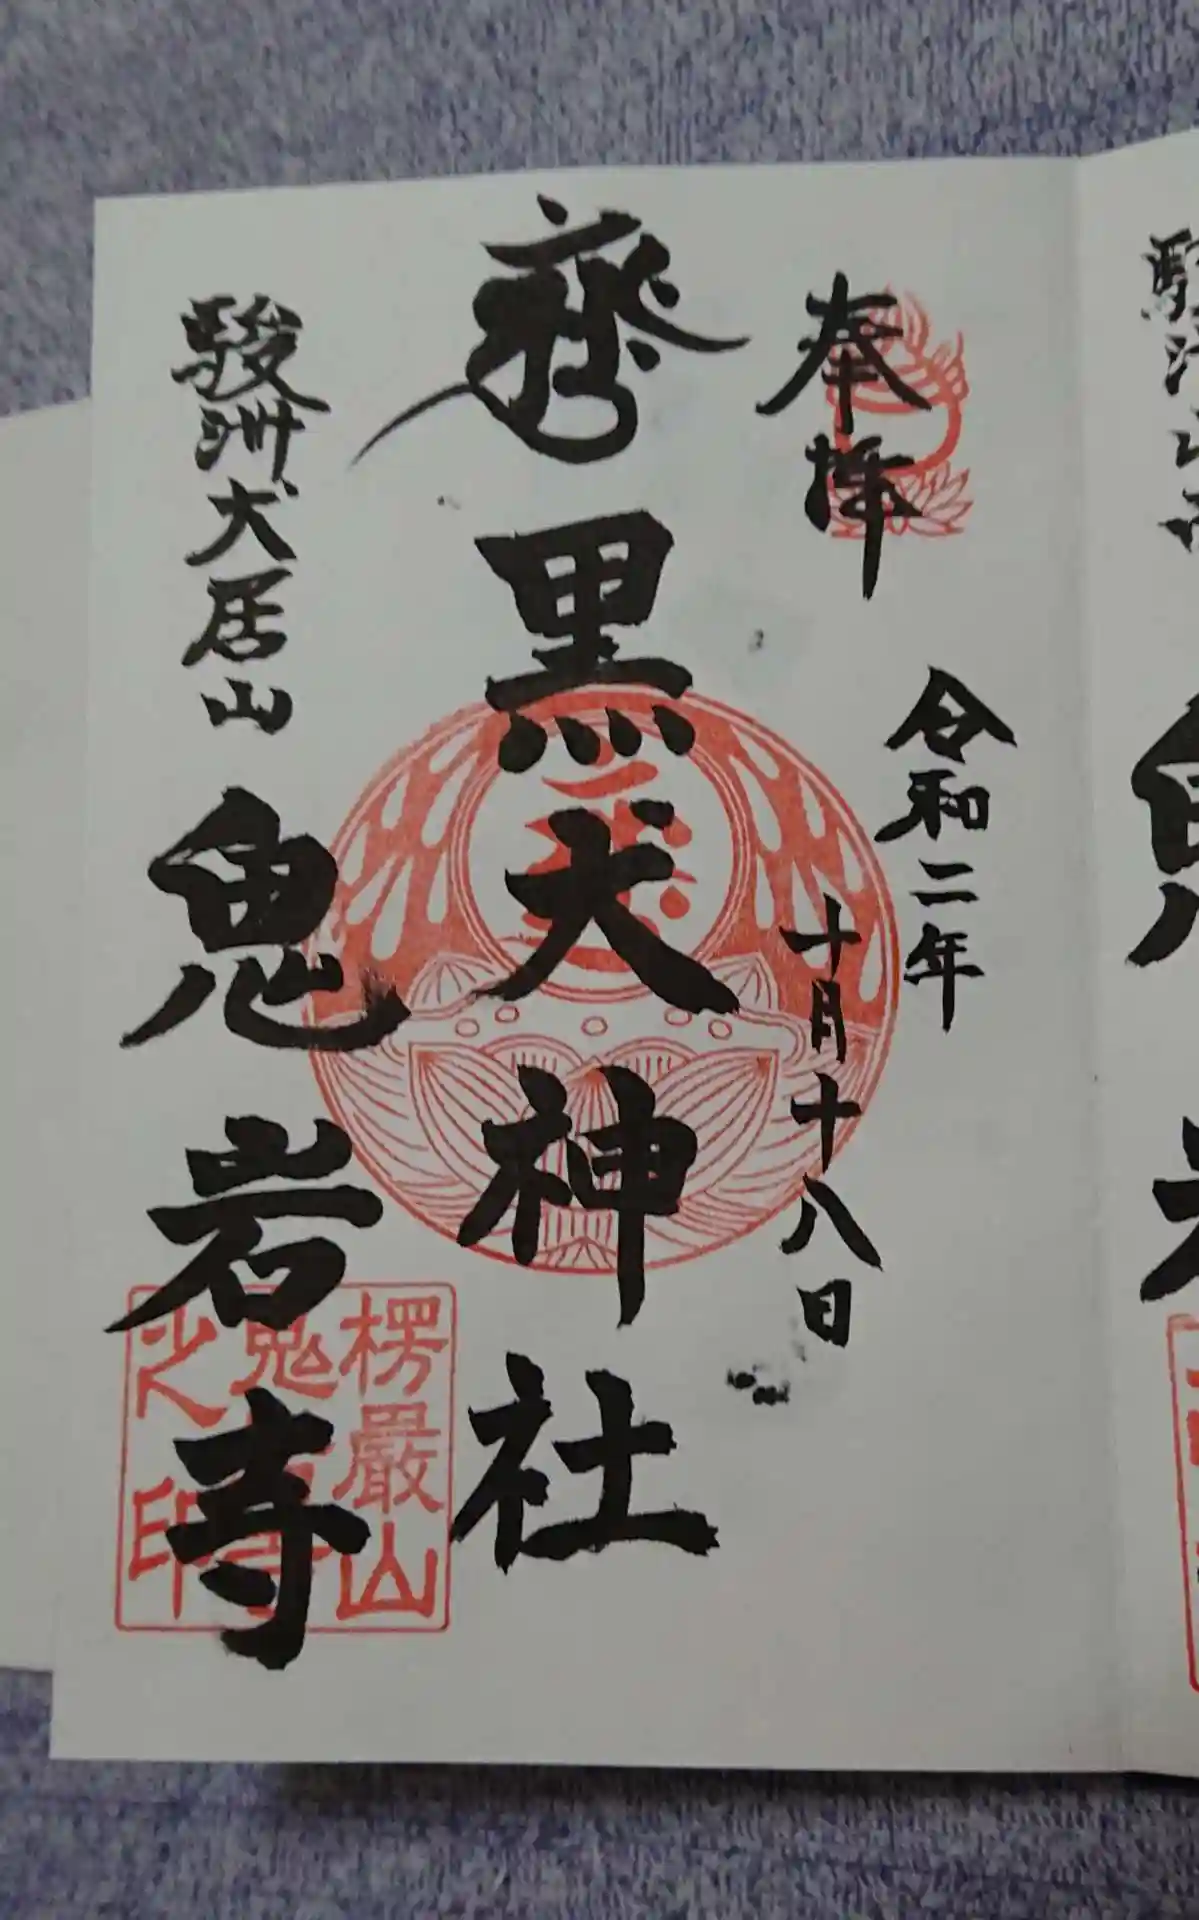 奉拝
令和二年
十月十八日
黒犬神社
駿洲犬居山
鬼岩寺
楞嚴山
鬼岩寺
之印